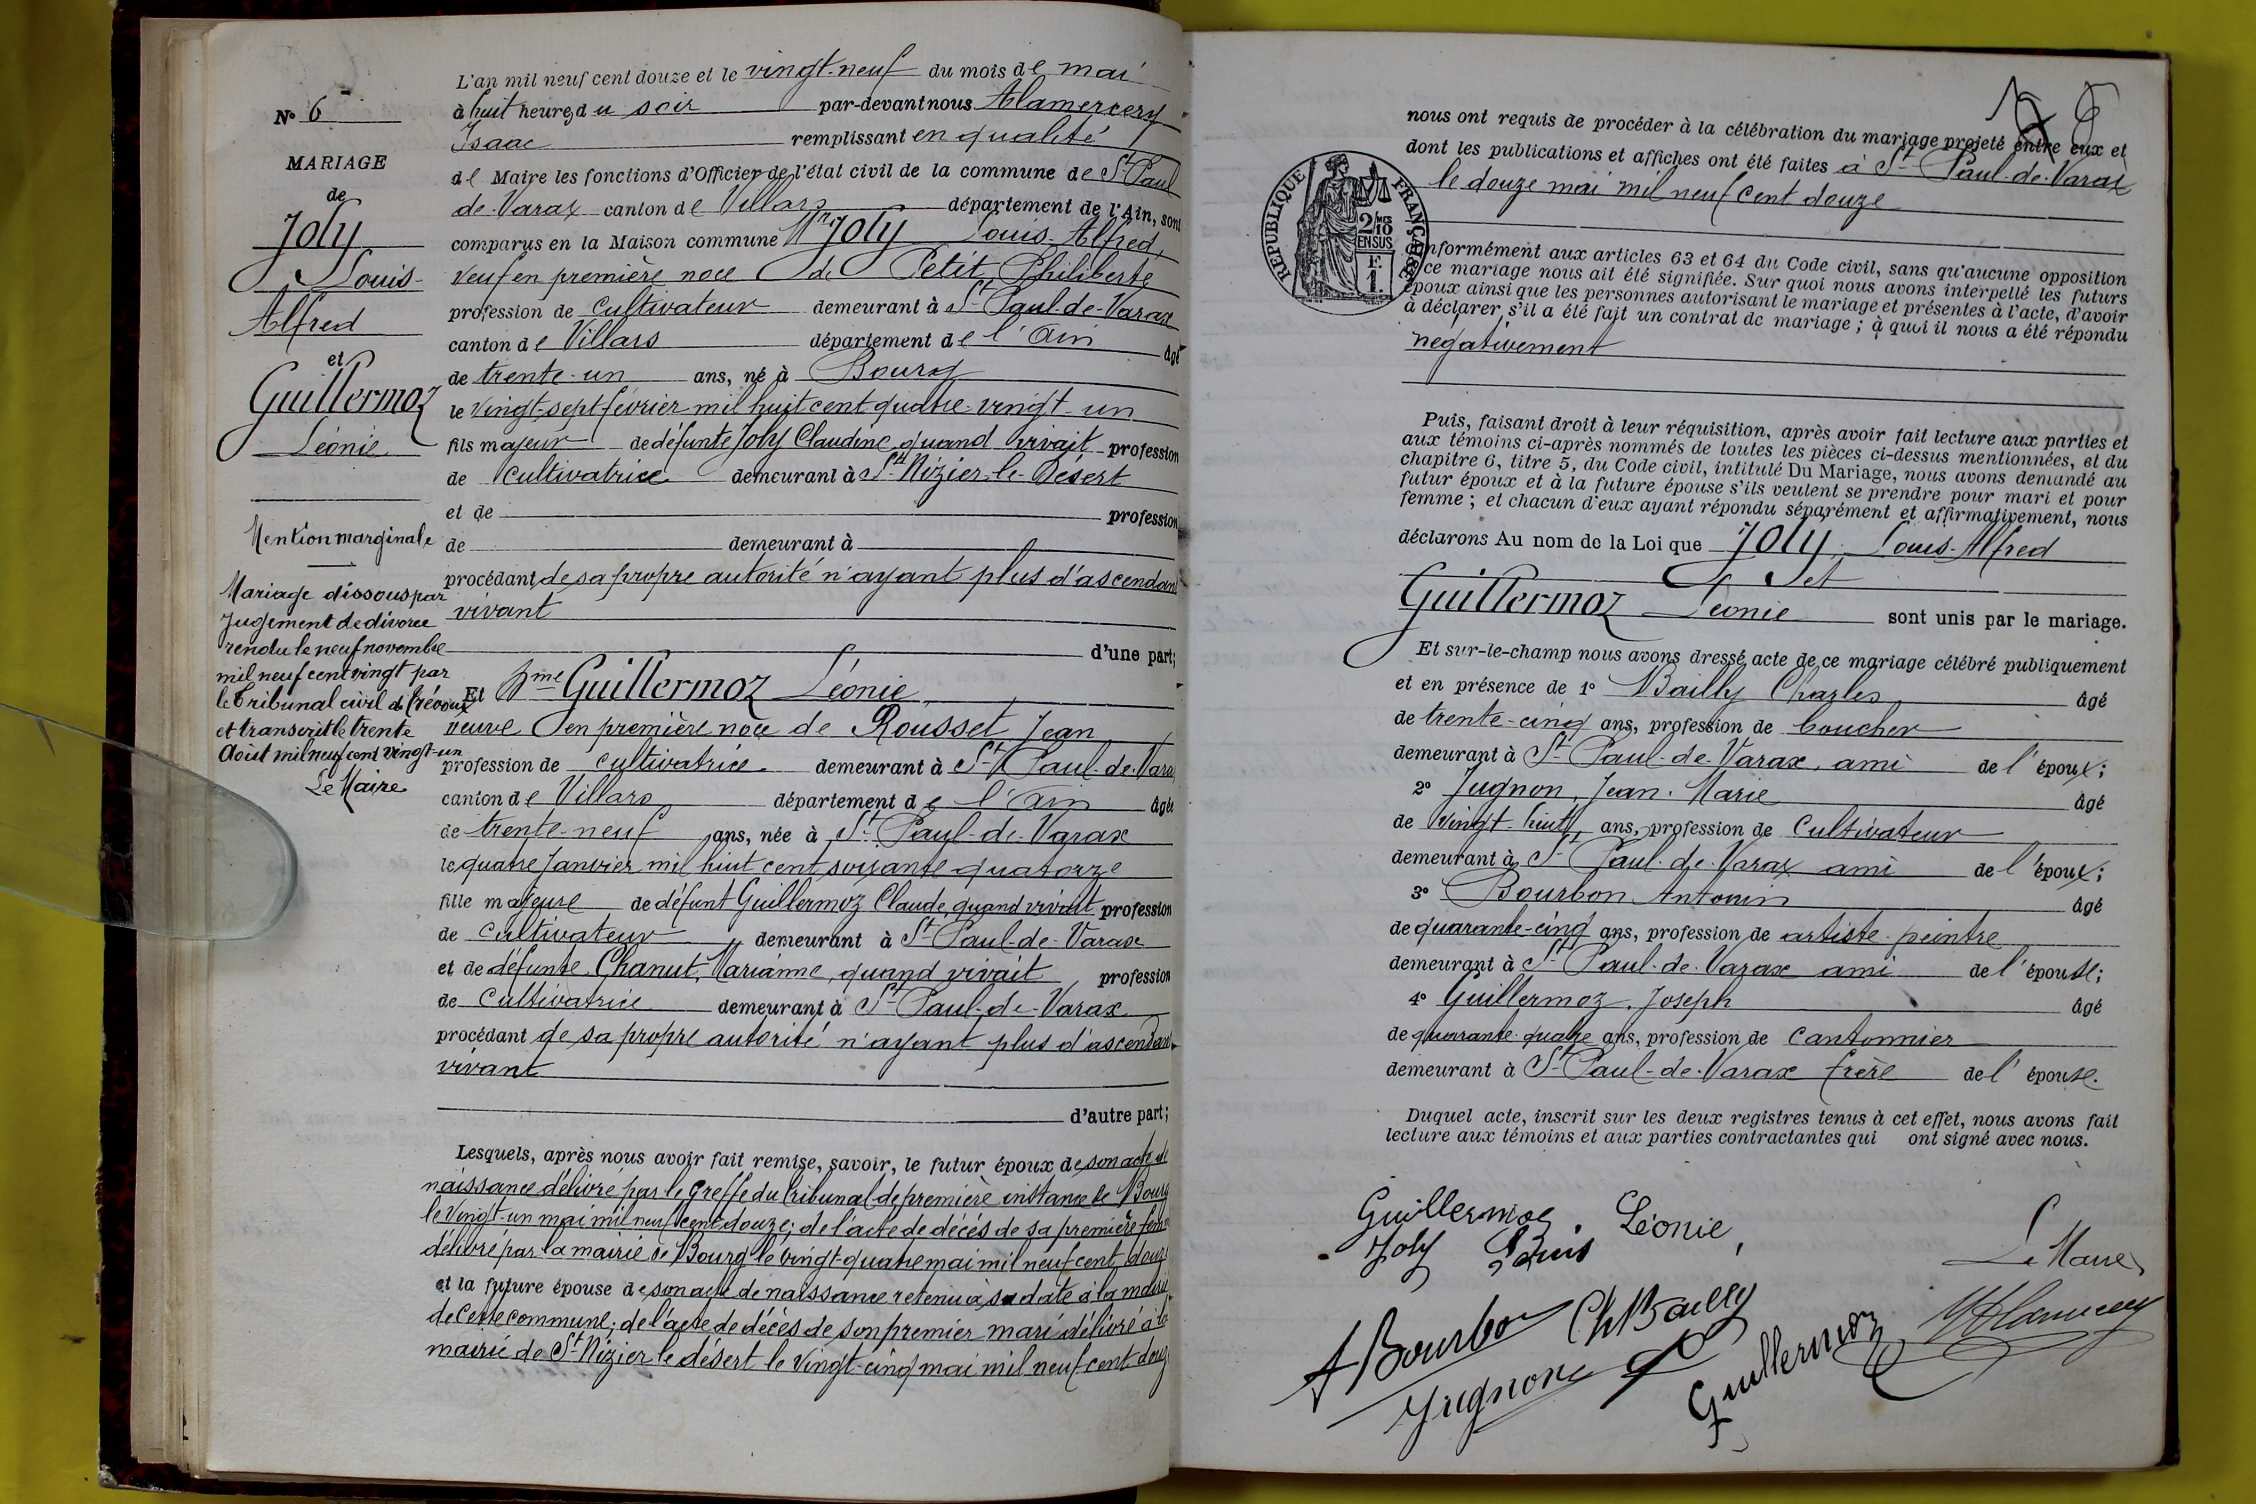 N° 6
MARIAGE
de
Joly
Louis-
Alfred
et
Guillermoz
Léonie
Mention marginale
Mariage dissous par
Jugement de divorce
rendu le neuf novembre
mil neuf cent vingt par
le Tribunal civil de Trévoux
et transcrit le trente
Août mil neuf cent vingt-un
Le Maire
L'an mil neuf cent douze et le vingt-neuf du mois de mai
à huit heures du soir par-devant nous Alamercery
Isaac remplissant en qualité
de Maire les fonctions d'Officier de l'état civil de la commune de St Paul
de-Varax canton de Villars département de l'Ain, sont
comparus en la Maison commune Mr Joly Louis-Alfred,
veuf en première noce de Petit Philiberte
profession de cultivateur demeurant à St Paul-de-Varax
canton de Villars département de l'Ain âgé
de trente-un ans, né à Bourg
le vingt-sept février mil huit cent quatre-vingt-un
fils majeur de défunte Joly Claudine, quand vivait profession
de cultivatrice demeurant à St Nizier-le-Désert
et de profession
de demeurant à
procédant de sa propre autorité n'ayant plus d'ascendant
vivant
d'une part;
Et Dme Guillermoz Léonie
veuve en première noce de Rousset Jean
profession de cultivatrice demeurant à St Paul-de-Varax
canton de Villars département de l'Ain âgée
de trente-neuf ans, née à St Paul-de-Varax
le quatre Janvier mil huit cent soixante quatorze
fille majeure de défunt Guillermoz Claude, quand vivait profession
de cultivateur demeurant à St Paul-de-Varax
et de défunte Chanut, Marianne, quand vivait profession
de cultivatrice demeurant à St Paul-de-Varax
procédant de sa propre autorité n'ayant plus d'ascendant
vivant
d'autre part;
Lesquels, après nous avoir fait remise, savoir, le futur époux de son acte de
naissance délivré par le Greffe du Tribunal de première instance de Bourg
le vingt-un mai mil neuf cent douze; de l'acte de décès de sa première femme
délivré par la mairie de Bourg le vingt-quatre mai mil neuf cent douze
et la future épouse de son acte de naissance retenu à sa date à la mairie
de cette commune; de l'acte de décès de son premier mari délivré à la
mairie de St Nizier le désert le vingt-cinq mai mil neuf cent douze
nous ont requis de procéder à la célébration du mariage projeté entre eux et
dont les publications et affiches ont été faites à St Paul-de-Varax
le douze mai mil neuf cent douze
RÉPUBLIQUE FRANÇAISE
2/10 MES
EN SUS
F.
1.
conformément aux articles 63 et 64 du Code civil, sans qu'aucune opposition
à ce mariage nous ait été signifiée. Sur quoi nous avons interpellé les futurs
époux ainsi que les personnes autorisant le mariage et présentes à l'acte, d'avoir
à déclarer s'il a été fait un contrat de mariage; à quoi il nous a été répondu
négativement
Puis, faisant droit à leur réquisition, après avoir fait lecture aux parties et
aux témoins ci-après nommés de toutes les pièces ci-dessus mentionnées, et du
chapitre 6, titre 5, du Code civil, intitulé Du Mariage, nous avons demandé au
futur époux et à la future épouse s'ils veulent se prendre pour mari et pour
femme; et chacun d'eux ayant répondu séparément et affirmativement, nous
déclarons Au nom de la Loi que Joly, Louis-Alfred
et
Guillermoz Léonie sont unis par le mariage.
Et sur-le-champ nous avons dressé acte de ce mariage célébré publiquement
et en présence de 1° Bailly Charles âgé
de trente-cinq ans, profession de boucher
demeurant à St Paul-de-Varax, ami de l'époux;
2° Jugnon, Jean-Marie âgé
de vingt-huit ans, profession de cultivateur
demeurant à St Paul-de-Varax ami de l'époux;
3° Bourbon Antonin âgé
de quarante-cinq ans, profession de artiste-peintre
demeurant à St Paul-de-Varax ami de l'épouse;
4° Guillermoz, Joseph âgé
de quarante-quatre ans, profession de cantonnier
demeurant à St Paul-de-Varax frère de l'épouse.
Duquel acte, inscrit sur les deux registres tenus à cet effet, nous avons fait
lecture aux témoins et aux parties contractantes qui ont signé avec nous.
Guillermoz. Léonie
Joly Louis
Le Maire
A Bourbon Ch Bailly
Jugnon
Guillermoz
Alamercery